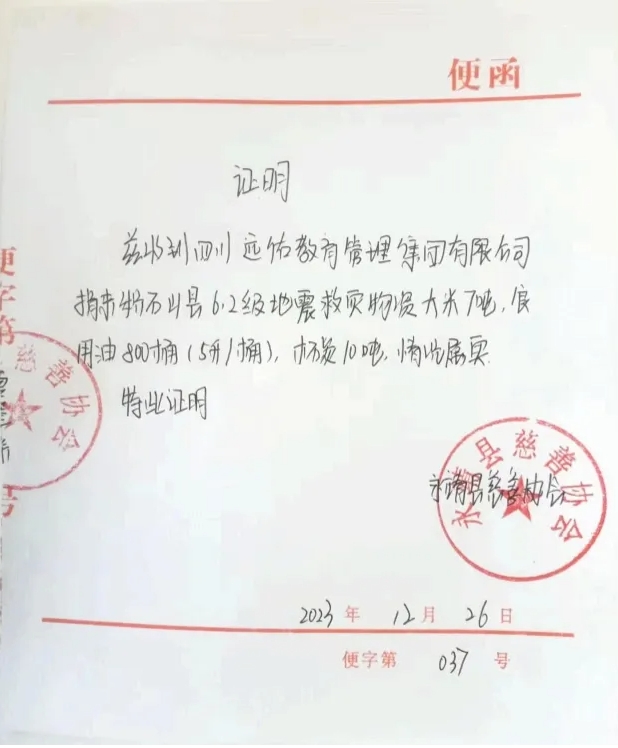 便函
证明
兹收到四川远佑教育管理集团有限公司
捐来积石山县6.2级地震救灾物资大米7吨,食
用油800桶(5升/桶),10吨,情况属实
特此证明
永靖县慈善协会
永靖县慈善协会
2023年12月26日
便字第037号
便字第
号
慈善协会